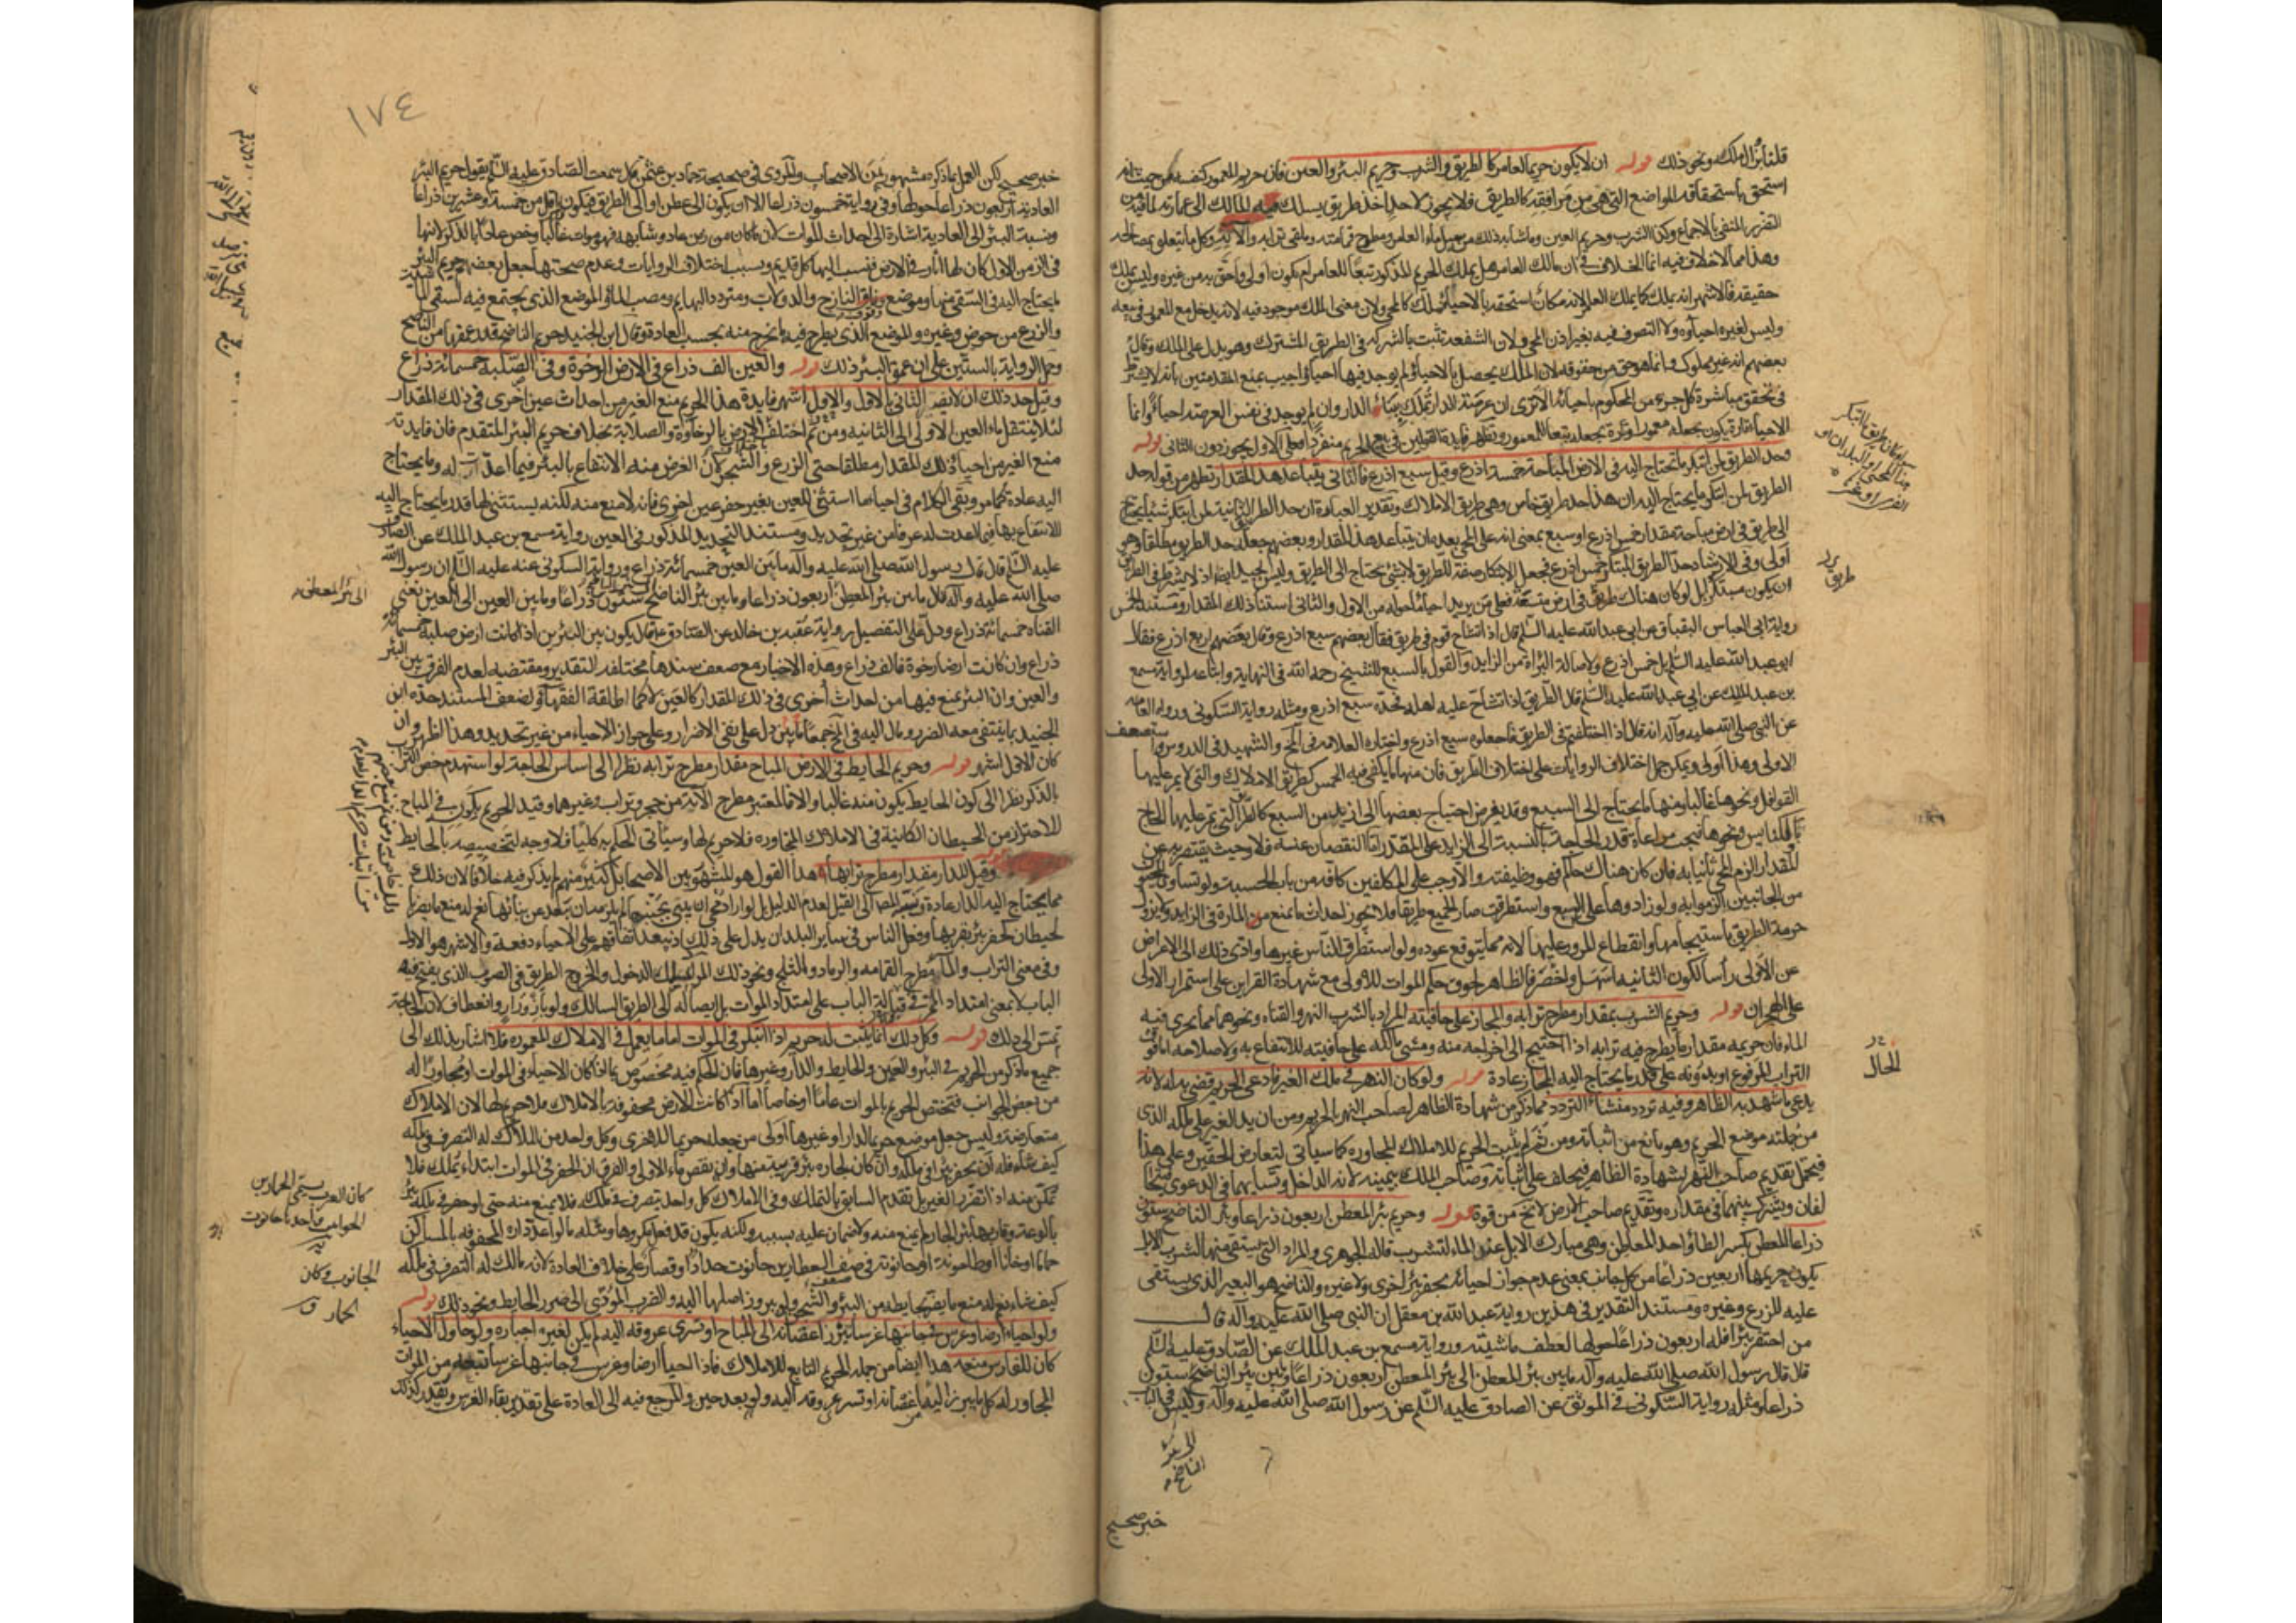 قلنا بزوال الملك ونحو ذلك قوله ان لا يكون حريما لعامر كالطريق والشرب وحريم البئر والعين فان حريم المعمور
استحق باستحقاقه المواضع التي هي من مرافقه كالطريق فلا يجوز لاحد اخذ طريق يسلك فيه المالك الى عمارته لما فيه من
الضرر المنفي بالاجماع وكذا الشرب وحريم العين وما شابه ذلك من مسيل ماء العامر ومطرح قمامته وملقى ترابه وآلاته وكل ما يتعلق بمصالحه
وهذا مما لا خلاف فيه انما الخلاف في ان مالك العامر هل يملك الحريم المذكور تبعا للعامر ام يكون اولى واحق به من غيره وليس بملك
حقيقة فالاشهر انه يملك كما يملك العامر لانه مكان استحقه بالاحياء فملك كالمحيى ولان معنى الملك موجود فيه لانه يدخل مع المعمور في بيعه
وليس لغيره احياؤه ولا التصرف فيه بغير اذن المحيي ولان الشفعة تثبت بالشركة في الطريق المشترك وهو يدل على الملك وقال
بعضهم انه غير مملوك وانما هو حق من حقوقه لان الملك يحصل بالاحياء ولم يوجد فيها احياء واجيب بمنع المقدمتين بانه لا يشترط
في تحقق مباشرة كل جزء من المحكوم باحيائه الا ترى ان عرصة الدار تملك ببناء الدار وان لم يوجد في نفس العرصة احياء وانما
الاحياء تارة يكون بجعله معمورا وتارة بجعله تبعا للمعمور وتظهر فايدة القولين في بيع الحريم منفردا فعلى الاول يجوز دون الثاني قوله
وحد الطريق لمن ابتكر ما يحتاج اليه في الارض المباحة خمسة اذرع وقيل سبع اذرع فالثاني يتباعد هذا المقدار تظهر من قوله حد
الطريق لمن ابتكر ما يحتاج اليه ان هذا حد طريق خاص وهي طريق الاملاك وتقدير العبارة ان حد الطريق الثانية لمن ابتكر شيئا يحتاج
الى طريق في ارض مباحة مقدار خمس اذرع او سبع بمعنى انه على المحيي بعده ان يتباعد هذا المقدار وبعضهم جعله حد الطريق مطلقا وهو
اولى وفي الارشاد حد الطريق المبتكر خمس اذرع فجعل الابتكار صفة للطريق لا لشيء يحتاج الى الطريق وليس بجيد ايضا اذ لا يشترط في الطريق
ان يكون مبتكرا بل لو كان هناك طريق في ارض متسعة فعلى من يريد احياء ما حوله من الاول والثاني استثناء ذلك المقدار ومستند الخمس
رواية ابي العباس البقباق عن ابي عبد الله عليه السلم قال اذا تشاح قوم في طريق فقال بعضهم سبع اذرع وقال بعضهم اربع اذرع فقال
ابو عبد الله عليه السلم بل خمس اذرع ولاصالة البراءة من الزايد والقول بالسبع للشيخ رحمه الله في النهاية واتباعه لرواية مسمع
بن عبد الملك عن ابي عبد الله عليه السلم قال الطريق اذا تشاح عليه اهله فحده سبع اذرع ومثله رواية السكوني ورواه العامه
عن النبي صلى الله عليه وآله انه قال اذا اختلفتم في الطريق فاجعلوه سبع اذرع واختاره العلامه في المخ والشهيد في الدروس واستضعف
الاولى وهذا اولى ويمكن حمل اختلاف الروايات على اختلاف الطريق فان منها ما يكفي فيه الخمس كطريق الاملاك والتي لا يمر عليها
القوافل ونحوها غالبا ومنها ما يحتاج الى السبع وقد يعرض احتياج بعضها الى ازيد من السبع كالطرق التي تمر عليها الحاج
بالكنايس ونحوها فيجب مراعاة قدر الحاجة بالنسبة الى الزايد على المقدر اما النقصان عنه فلا وحيث يقتصر به عن
المقدار الزم المحيي ثانيا به فان كان هناك حاكم فهو وظيفته والا وجب على المكلفين كافة من باب الحسبة ولو تساوق المحيون
من الجانبين الزموا به ولو زادوها على السبع واستطرقت صار الجميع طريقا فلا يجوز احداث ما يمنع من المارة في الزايد ولا يزول
حرمة الطريق باستيجامها وانقطاع المرور عليها لانه مما يتوقع عوده ولو استطرق للناس غيرها وادى ذلك الى الاعراض
عن الاولى رأسا لكون الثانيه اسهل واخصر فالظاهر لحوق حكم الموات للاولى مع شهادة القراين على استمرار الاولى
على الهجران قوله وحريم الشرب بمقدار مطرح ترابه والمجاز على حافيته المراد بالشرب النهر والقناة ونحوهما مما يجري فيه
الماء فان حريمه مقدار ما يطرح فيه ترابه اذا احتيج الى اخراجه منه ومشي مالكه على حافيته للانتفاع به ولاصلاحه اما فوق
التراب المرفوع او بدونه على قدر ما يحتاج اليه المجاز عادة قوله ولو كان النهر في ملك الغير فادعى الحريم قضي به له لانه
يدعي ما يشهد به الظاهر وفيه تردد منشأ التردد مما ذكر من شهادة الظاهر لصاحب النهر بالحريم ومن ان يد الغير على ملكه الذي
من جملته موضع الحريم وهو مانع من اثباته ومن ثم لم يثبت الحريم للاملاك المتجاوره كما سياتي لتعارض الحقين وعلى هذا
فيحتمل تقديم صاحب النهر لشهادة الظاهر فيحلف على اثباته وصاحب الملك بيمينه لانه الداخل وتساويهما في الدعوى فيتحا
لفان ويشترك بينهما في مقداره وتقديم صاحب الارض لا يخ من قوة قوله وحريم بئر المعطن اربعون ذراعا وبئر الناضح ستون
ذراعا المعطن بكسر الطاء واحد المعاطن وهي مبارك الابل عند الماء لتشرب قاله الجوهري والمراد التي يستقي منها لشرب الابل
يكون حريمها اربعين ذراعا من كل جانب بمعنى عدم جواز احيائه بحفر بئر اخرى ولا غيره والناضح هو البعير الذي يستقى
عليه للزرع وغيره ومستند التقدير في هذين رواية عبد الله بن معقل ان النبي صلى الله عليه وآله قال
من احتفر بئرا فله اربعون ذراعا حولها لعطف ماشيته ورواية مسمع بن عبد الملك عن الصادق عليه السلم
قال قال رسول الله صلى الله عليه وآله ما بين بئر المعطن الى بئر المعطن اربعون ذراعا وبين بئر الناضح ستون
ذراعا ومثله رواية السكوني في الموثق عن الصادق عليه السلم عن رسول الله صلى الله عليه وآله وليس في الباب
الى بئر
الناضح
خبر صحيح
طريق
الحال
١٧٤
خبر صحيح لكن العمل بما ذكره مشهور بين الاصحاب والمروي في صحيحة حماد بن عثمن قال سمعت الصادق عليه السلم يقول حريم البئر
العادية اربعون ذراعا حولها وفي رواية خمسون ذراعا الا ان يكون الى عطن او الى الطريق فيكون اقل من خمسة وعشرين ذراعا
ونسبة البئر الى العادية اشارة الى احداث الموات لان ما كان من زمن عاد وشابهه فهو موات غالبا وخص عادا بالذكر لانها
في الزمن الاول كان لها آبار في الارض فنسب اليها كل قديم وبسبب اختلاف الروايات وعدم صحتها جعل بعضهم حريم البئر
ما يحتاج اليه في السقي منها وموضع وقوف النازح والدولاب ومتردد البهايم ومصب الماء والموضع الذي يجتمع فيه لسقي الماشية
والزرع من حوض وغيره والموضع الذي يطرح فيه ما يخرج منه بحسب العادة وقال ابن الجنيد حريم الناضح قدر عمقها
وحمل الرواية بالستين على ان عمق البئر ذلك قوله والعين الف ذراع في الارض الرخوة وفي الصلبة خمسمائة ذراع
وقيل حد ذلك ان لا يضر الثاني بالاول والاول اشهر فايدة هذا الحريم منع الغير من احداث عين اخرى في ذلك المقدار
لئلا ينتقل ماء العين الاولى الى الثانيه ومن ثم اختلف الارض بالرخاوة والصلابة بخلاف حريم البئر المتقدم فان فايدته
منع الغير من احياء ذلك المقدار مطلقا حتى الزرع والشجر لان الغرض منه الانتفاع بالبئر فيما اعدت له وما يحتاج
اليه عادة كما مر وبقي الكلام في احياء ما استثني للعين بغير حفر عين اخرى فانه لا منع منه لكنه يستثنى لها قدر ما يحتاج اليه
للانتفاع بها فيما اعدت له عرفا من غير تحديد ومستند التحديد المذكور في العين رواية مسمع بن عبد الملك عن الصادق
عليه السلم قال قال رسول الله صلى الله عليه وآله ما بين العين خمسمائة ذراع ورواية السكوني عنه عليه السلم ان رسول الله
صلى الله عليه وآله قال ما بين بئر المعطن اربعون ذراعا وما بين بئر الناضح ستون ذراعا وما بين العين الى العين يعني
القناة خمسمائة ذراع ودل على التفصيل رواية عقبه بن خالد عن الصادق ع قال يكون بين البئرين اذا كانت ارض صلبه خمسمائة
ذراع وان كانت ارضا رخوة فالف ذراع وهذه الاخبار مع ضعف سندها مختلفه التقدير ومقتضيه لعدم الفرق بين البئر
والعين وان البئر يمنع فيها من احداث اخرى في ذلك المقدار كالعين لا كما اطلقه الفقهاء ولضعف المستند حده ابن
الجنيد بما ينتفي معه الضرر ومال اليه في المخ جمعا بما بين دل على نفي الاضرار وعلى جواز الاحياء من غير تحديد وهذا اظهر وان
كان الاول اشهر قوله وحريم الحايط في الارض المباح مقدار مطرح ترابه نظرا الى امساس الحاجة لو استهدم خص التراب
بالذكر نظرا الى كون الحايط يكون منه غالبا والا فالمعتبر مطرح الآته من حجر وتراب وغيرهما وقيد الحريم بكونه في المباح
للاحتراز من الحيطان الكائنه في الاملاك المتجاوره فلا حريم لها وسياتي الحكم به كليا فلا وجه لتخصيصه بالحايط
قوله وقيل للدار مقدار مطرح ترابها هذا القول هو المشهور بين الاصحاب بل كثير منهم لم يذكر فيه خلافا لان ذلك
مما يحتاج اليه الدار عادة ونسبه المص الى القيل لعدم الدليل بل لو اراد محيي ان يبني بجنبها لم يلزمه ان يبعد عن بنائها نعم له منع ما يضر بالحيطان
لحيطان كحفر بئر بقربها وفعل الناس في ساير البلدان يدل على ذلك اذ يبعد اتفاقهم على الاحياء دفعة والاشهر هو الاول
وفي معنى التراب والماء مطرح القمامه والرماد والثلج ونحو ذلك ومسلك الدخول والخروج الطريق في الصوب الذي يفتح فيه
الباب لا بمعنى امتداد الممر في قبالة الباب على امتداد الموات بل ايصاله الى الطريق السالك ولو بازورار وانعطاف لان الحاجة
تمس الى ذلك قوله وكل ذلك انما يثبت له حريم اذا ابتكر في الموات اما ما يعمل في الاملاك المعموره فلا اشار بذلك الى
جميع ما ذكر من الحريم في البئر والعين والحايط والدار وغيرها فان الحكم فيه مخصوص بما اذا كان الاحياء في الموات او مجاورا له
من بعض الجوانب فتختص الحريم بالموات عاما او خاصا اما اذا كانت الارض محفوفة بالاملاك فلا حريم لها لان الاملاك
متعارضة وليس جعل موضع حريما لدار او غيرها اولى من جعله حريما للاخرى وكل واحد من الملاك له التصرف في ملكه
كيف شاء فله ان يحفر بئرا في ملكه وان كان لجاره بئر قريبة منها وان نقص ماء الاولى والفرق ان الحفر في الموات ابتداء تملك فلا
تمكن منه اذا تضرر الغير بل تقدم السابق بالتملك وفي الاملاك كل واحد يتصرف في ملكه فلا يمنع منه حتى لو حفر في ملكه بئر
بالوعة وفارها بئر الجار لم يمنع منه ولا ضمان عليه بسببه ولكنه يكون قد فعل مكروها ومثله ما لو اعد داره المحفوفه بالمساكن
حماما او خانا او طاحونة او حانوته في صف العطارين حانوت حداد او قصار على خلاف العادة لانه مالك له التصرف في ملكه
كيف شاء نعم له منع ما يضر بحايطه من البئر والشجر ولو ببروز اصلها اليه والضرب المؤدي الى ضرر الحايط ونحو ذلك قوله
ولو احيا ارضا وغرس بجانبها غرسا يبرز اغصانه الى المباح او تسري عروقه اليه لم يكن لغيره احياره ولو حاول الاحياء
كان للغارس منعه هذا ايضا من جمله الحريم التابع للاملاك فاذا احيا ارضا وغرس في جانبها غرسا تبعه من الموات
المجاور له كل ما يبرز اليه اغصانه او تسري عروقه اليه ولو بعد حين والمرجع فيه الى العادة على تقدير بقاء الغرس وتقدير كذلك
الى بئر المعطن